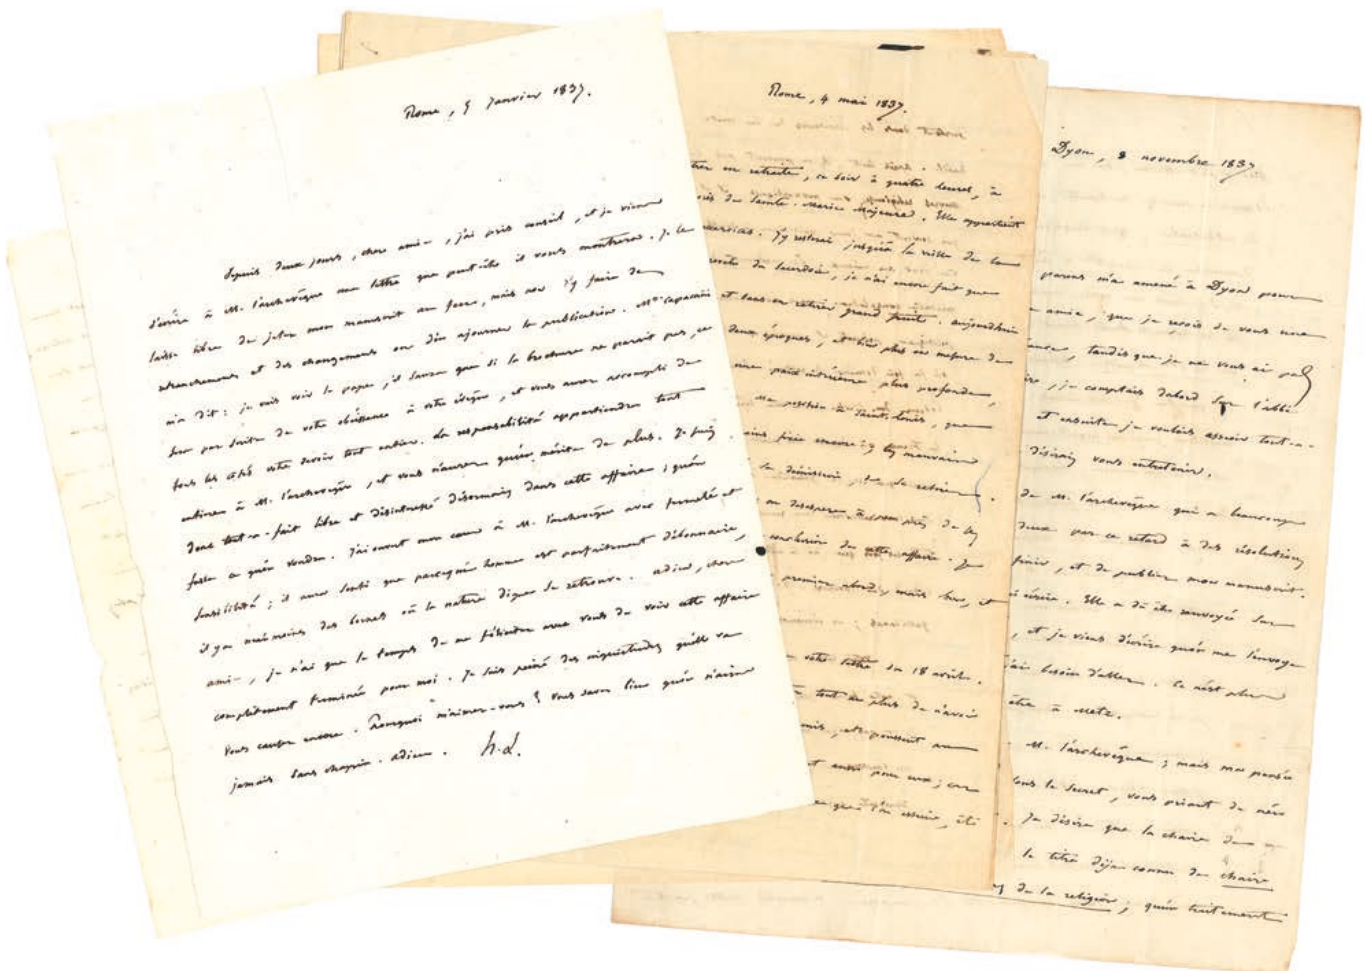 Rome, 5 janvier 1837.
depuis deux jours, chere amie, j'ai pris conseil, et je viens
d'écrire à M. l'archevêque une lettre que peut-être il vous montrera. je le
laisse libre de jeter mon manuscrit au feu, mais non d'y faire de
retranchemens et des changemens ou d'en ajourner la publication. Mgr Capaccini
m'a dit: je vais voir le pape, il saura que si la brochure ne parait pas, ce
sera par suite de votre obéissance à votre évêque, et vous aurez accompli de
tous les côtés votre devoir tout entier. La responsabilité appartiendra tout
entiere à M. l'archevêque, et vous n'aurez qu'un mérite de plus. je suis
donc tout-a-fait libre et désintéressé désormais dans cette affaire; qu'on
fasse ce qu'on voudra. J'ai ouvert mon coeur à M. l'archevêque avec fermeté et
sensibilité; il aura senti que parcequ'un homme est parfaitement débonnaire,
il y a néanmoins des bornes où la nature digne se retrouve. adieu, chere
amie, je n'ai que le temps de me féliciter avec vous de voir cette affaire
complètement terminée pour moi. Je suis peiné des inquiétudes qu'elle va
vous causer encore. Pourquoi m'aimez-vous? Vous savez bien qu'on n'aime
jamais sans chagrin. adieu. h.L.
Rome, 4 mai 1837.
en retraite, ce soir à quatre heures, à
de Sainte-Marie Majeure. Elle appartient
J'y resterai jusqu'à la veille de la
du sacerdoce, je n'ai encore fait que
et sans en retirer grand fruit. aujourdhui
deux époques, et bien plus en mesure de
une paix intérieure plus profonde,
Ma position à Saint-Louis, que
fixée encore; les mauvais
la démission, de se retirer.
on desespere à peu près de
conclusion de cette affaire. Je
premier abord, mais bon, et
votre lettre du 18 avril.
tout au plus de n'avoir
et poussent au
aussi pour eux; car
Dyon, 8 novembre 1837
parens m'a amené à Dyon pour
amie, que je reçois de vous une
tandis que je ne vous ai pas
je comptais dabord sur l'abbé
et ensuite je voulais asseoir tout-a-
désirais vous entretenir.
de M. l'archevêque qui a beaucoup
deux par ce retard à des résolutions
finir, et de publier mon manuscrit.
écrire. Elle a dû être renvoyée sur
et je viens d'écrire qu'on me l'envoye
besoin d'aller. Ce n'est plus
être à Metz.
M. l'archevêque; mais ma pensée
sous le secret, vous priant de n'en
Je désire que la chaire de
le titre déja connu de chaire
de la religion; qu'un traitement